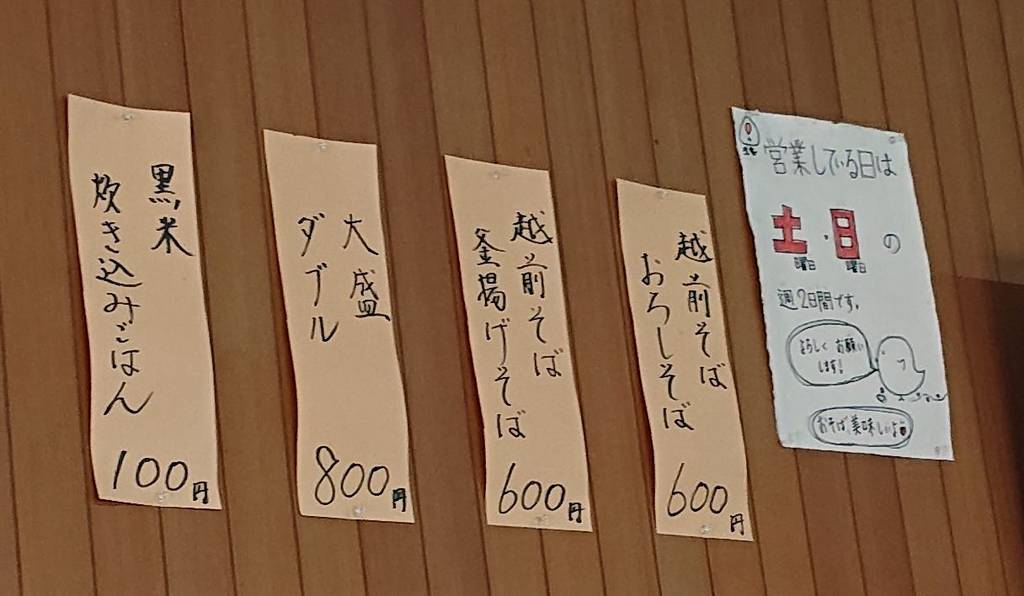 営業している日は
土・日の
曜日 曜日
週2日間です。
よろしく お願い
します!
おそば美味しいよ
越前そば
おろしそば
600円
越前そば
釜揚げそば
600円
大盛
ダブル
800円
黒米
炊き込みごはん
100円